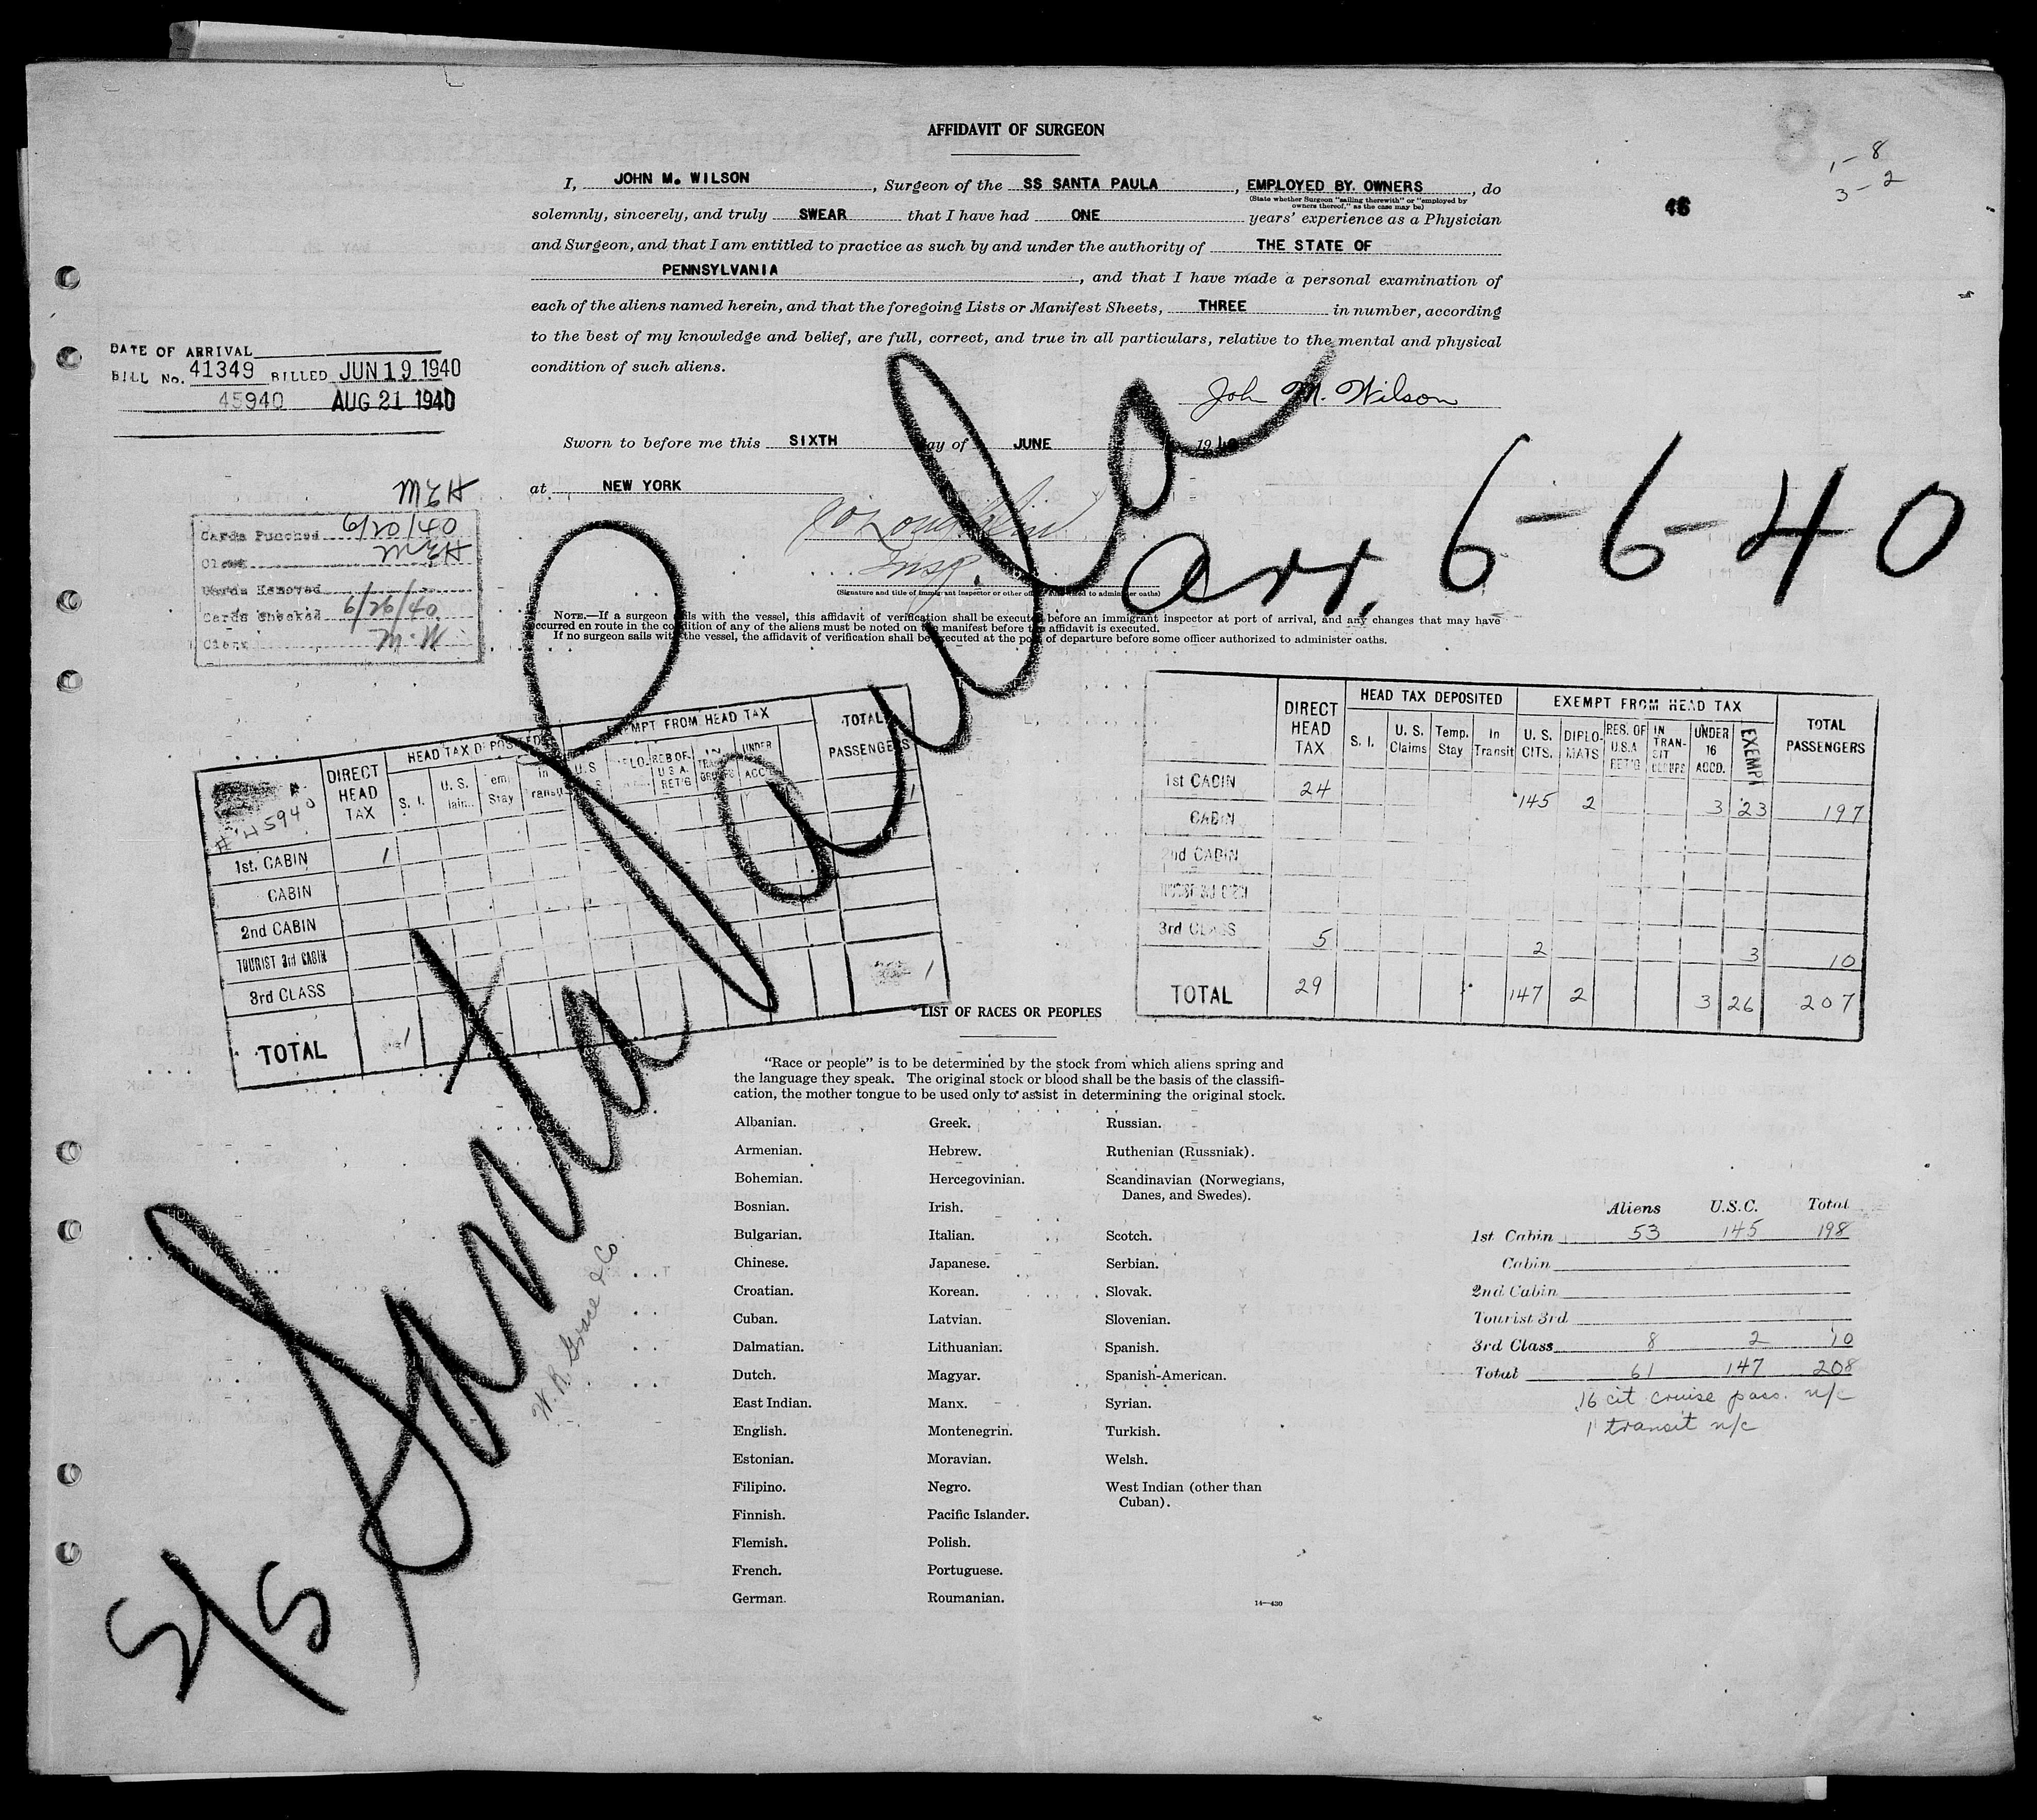 AFFIDAVIT OF SURGEON
1-8
3-2
8
46
I, JOHN M. WILSON, Surgeon of the SS SANTA PAULA, EMPLOYED BY. OWNERS, do
(State whether Surgeon "sailing therewith" or "employed by
owners thereof," as the case may be)
solemnly, sincerely, and truly SWEAR that I have had ONE years' experience as a Physician
and Surgeon, and that I am entitled to practice as such by and under the authority of THE STATE OF
PENNSYLVANIA, and that I have made a personal examination of
each of the aliens named herein, and that the foregoing Lists or Manifest Sheets, THREE in number, according
to the best of my knowledge and belief, are full, correct, and true in all particulars, relative to the mental and physical
condition of such aliens.
John M. Wilson
Sworn to before me this SIXTH day of JUNE, 1940
at NEW YORK
Insp.
(Signature and title of immigrant inspector or other officer authorized to administer oaths)
NOTE.—If a surgeon sails with the vessel, this affidavit of verification shall be executed before an immigrant inspector at port of arrival, and any changes that may have
occurred en route in the condition of any of the aliens must be noted on the manifest before the affidavit is executed.
If no surgeon sails with the vessel, the affidavit of verification shall be executed at the port of departure before some officer authorized to administer oaths.
DATE OF ARRIVAL
BILL No. 41349 BILLED JUN 19 1940
45940 AUG 21 1940
MEH
Cards Punched 6/20/40
Clerk MEH
Cards Removed
Cards Checked 6/26/40
Clerk M.W
S/S Santa Paula
arr. 6-6-40
W. R. Grace & Co
# 45940
DIRECT HEAD TAX
HEAD TAX DEPOSITED
EXEMPT FROM HEAD TAX
TOTAL PASSENGERS
S. I. U. S. Claims Temp. Stay In Transit U.S. RES OF U S A. RET'G UNDER ACC'D
1
1st. CABIN 1
CABIN
2nd CABIN
TOURIST 3rd CABIN
3rd CLASS 1
TOTAL 1
DIRECT HEAD TAX
HEAD TAX DEPOSITED
EXEMPT FROM HEAD TAX
TOTAL PASSENGERS
S. I. U. S. Claims Temp. Stay In Transit U. S. CITS. DIPLO-MATS RES. OF U.S.A RET'G IN TRAN-SIT GROUPS UNDER 16 ACCD. EXEMPT
1st CABIN 24 145 2 3 23 197
CABIN
2nd CABIN
TOURIST 3rd CABIN
3rd CLASS 5 2 3 10
TOTAL 29 147 2 3 26 207
LIST OF RACES OR PEOPLES
"Race or people" is to be determined by the stock from which aliens spring and
the language they speak. The original stock or blood shall be the basis of the classifi-
cation, the mother tongue to be used only to assist in determining the original stock.
Albanian.
Armenian.
Bohemian.
Bosnian.
Bulgarian.
Chinese.
Croatian.
Cuban.
Dalmatian.
Dutch.
East Indian.
English.
Estonian.
Filipino.
Finnish.
Flemish.
French.
German.
Greek.
Hebrew.
Hercegovinian.
Irish.
Italian.
Japanese.
Korean.
Latvian.
Lithuanian.
Magyar.
Manx.
Montenegrin.
Moravian.
Negro.
Pacific Islander.
Polish.
Portuguese.
Roumanian.
Russian.
Ruthenian (Russniak).
Scandinavian (Norwegians,
Danes, and Swedes).
Scotch.
Serbian.
Slovak.
Slovenian.
Spanish.
Spanish-American.
Syrian.
Turkish.
Welsh.
West Indian (other than
Cuban).
14—430
Aliens U.S.C. Total
1st Cabin 53 145 198
Cabin
2nd Cabin
Tourist 3rd
3rd Class 8 2 10
Total 61 147 208
16 cit cruise pass. n/c
1 transit n/c